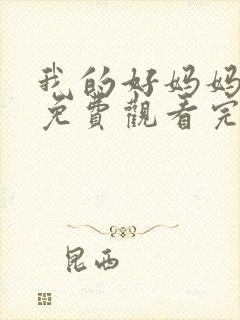 我的好妈妈
免费觀看完
昆西